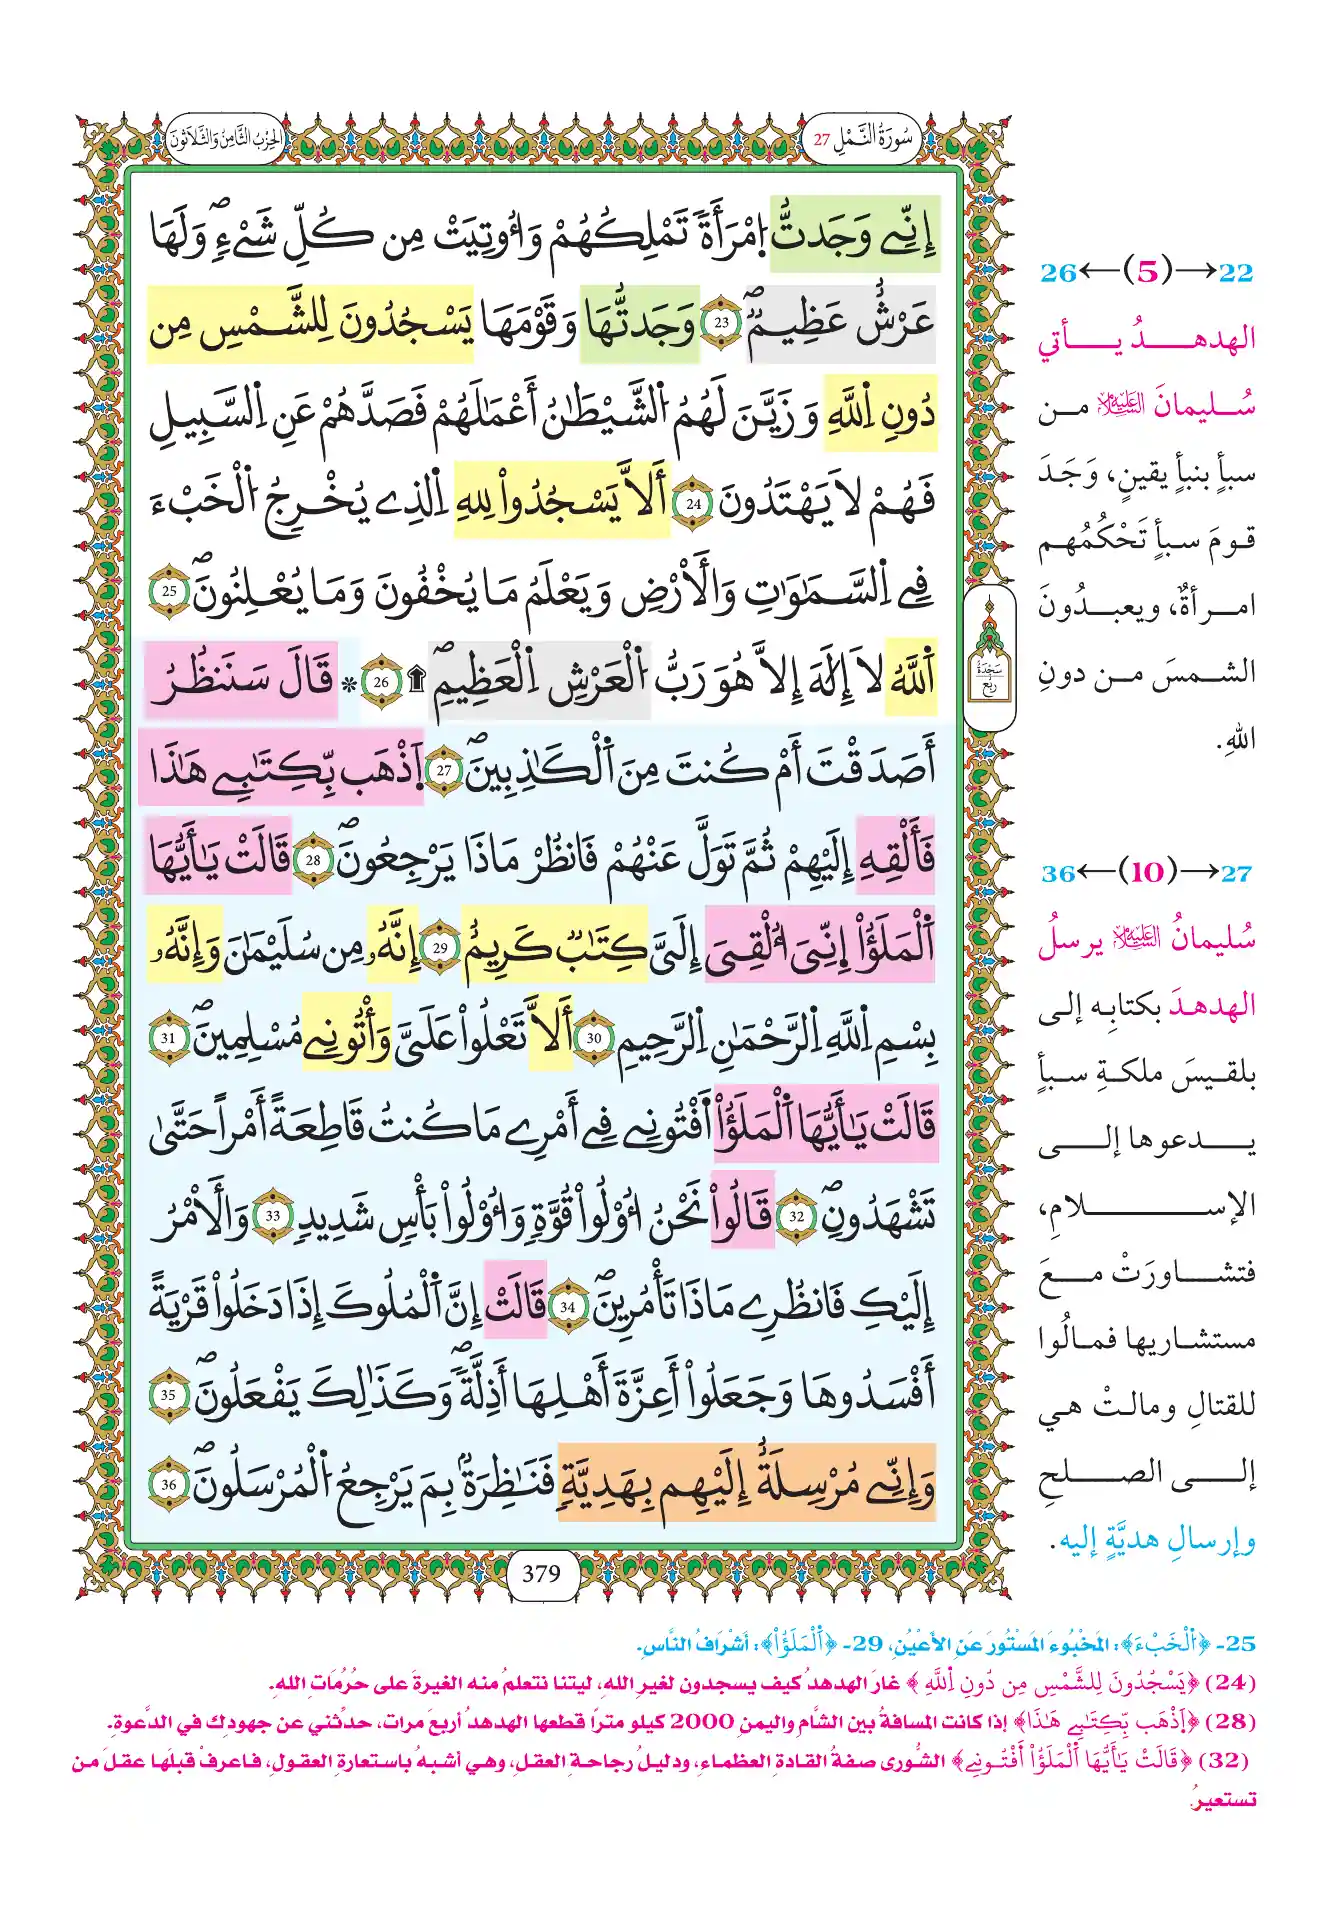 سُورَةُ النَّمْلِ 27
الحِزْبُ الثَّامِنُ وَالثَّلَاثُونَ
إِنِّے وَجَدتُّ اُ۪مْرَأَةٗ تَمْلِكُهُمْ وَأُوتِيَتْ مِن كُلِّ شَےْءٖۖ وَلَهَا
عَرْشٌ عَظِيمٞۖ 23 وَجَدتُّهَا وَقَوْمَهَا يَسْجُدُونَ لِلشَّمْسِ مِن
دُونِ اِ۬للَّهِ وَزَيَّنَ لَهُمُ اُ۬لشَّيْطَٰنُ أَعْمَٰلَهُمْ فَصَدَّهُمْ عَنِ اِ۬لسَّبِيلِ
فَهُمْ لَا يَهْتَدُونَ 24 أَلَّا يَسْجُدُواْ لِلهِ اِ۬لذِے يُخْرِجُ اُ۬لْخَبْءَ
فِے اِ۬لسَّمَٰوَٰتِ وَالْأَرْضِ وَيَعْلَمُ مَا يُخْفُونَ وَمَا يُعْلِنُونَۖ 25
اَ۬للَّهُ لَا إِلَٰهَ إِلَّا هُوَ رَبُّ اُ۬لْعَرْشِ اِ۬لْعَظِيمِۖ ۩ 26 * قَالَ سَنَنظُرُ
أَصَدَقْتَ أَمْ كُنتَ مِنَ اَ۬لْكَٰذِبِينَۖ 27 اَ۪ذْهَب بِّكِتَٰبِے هَٰذَا
فَأَلْقِهِ إِلَيْهِمْ ثُمَّ تَوَلَّ عَنْهُمْ فَانظُرْ مَاذَا يَرْجِعُونَۖ 28 قَالَتْ يَٰأَيُّهَا
اَ۬لْمَلَؤُاْ اِ۪نِّىَ أُلْقِىَ إِلَىَّ كِتَٰبٞ كَرِيمٌ 29 إِنَّهُۥ مِن سُلَيْمَٰنَ وَإِنَّهُۥ
بِسْمِ اِ۬للَّهِ اِ۬لرَّحْمَٰنِ اِ۬لرَّحِيمِ 30 أَلَّا تَعْلُواْ عَلَىَّ وَأْتُونِے مُسْلِمِينَۖ 31
قَالَتْ يَٰأَيُّهَا اَ۬لْمَلَؤُاْ اَ۬فْتُونِے فِے أَمْرِے مَا كُنتُ قَاطِعَةً أَمْراً حَتَّىٰ
تَشْهَدُونِۖ 32 قَالُواْ نَحْنُ أُوْلُواْ قُوَّةٖ وَأُوْلُواْ بَأْسٖ شَدِيدٖ 33 وَالْأَمْرُ
إِلَيْكِ فَانظُرِے مَاذَا تَأْمُرِينَۖ 34 قَالَتْ إِنَّ اَ۬لْمُلُوكَ إِذَا دَخَلُواْ قَرْيَةً
أَفْسَدُوهَا وَجَعَلُواْ أَعِزَّةَ أَهْلِهَا أَذِلَّةٗۖ وَكَذَٰلِكَ يَفْعَلُونَۖ 35
وَإِنِّے مُرْسِلَةٌ إِلَيْهِم بِهَدِيَّةٖ فَنَٰظِرَةُۢ بِمَ يَرْجِعُ اُ۬لْمُرْسَلُونَۖ 36
سَجْدَةٌ
رُبُع
379
22→(5)←26
الهدهدُ يـأتي
سُليمانَ عليه السلام من
سبأٍ بنبأٍ يقينٍ، وَجَدَ
قومَ سبأٍ تَحْكُمُهم
امرأةٌ، ويعبدُونَ
الشمسَ من دونِ
اللهِ.
27→(10)←36
سُليمانُ عليه السلام يرسلُ
الهدهدَ بكتابِه إلى
بلقيسَ ملكةِ سبأٍ
يدعوها إلى
الإسلامِ،
فتشاورَتْ معَ
مستشاريها فمالُوا
للقتالِ ومالتْ هي
إلى الصلحِ
وإرسالِ هديَّةٍ إليه.
25- ﴿اُ۬لْخَبْءَ﴾: المَخْبُوءَ المَسْتُورَ عَنِ الأَعْيُنِ، 29- ﴿اَ۬لْمَلَؤُاْ﴾: أَشْرَافُ النَّاسِ.
(24) ﴿يَسْجُدُونَ لِلشَّمْسِ مِن دُونِ اِ۬للَّهِ﴾ غارَ الهدهدُ كيف يسجدون لغيرِ اللهِ، ليتنا نتعلمُ منه الغيرةَ على حُرُمَاتِ اللهِ.
(28) ﴿اَ۪ذْهَب بِّكِتَٰبِے هَٰذَا﴾ إذا كانت المسافةُ بين الشَّامِ واليمنِ 2000 كيلو مترًا قطعها الهدهدُ أربعَ مرات، حدِّثني عن جهودِك في الدَّعوةِ.
(32) ﴿قَالَتْ يَٰأَيُّهَا اَ۬لْمَلَؤُاْ اَ۬فْتُونِے﴾ الشُّورى صفةُ القادةِ العظماءِ، ودليلُ رجاحةِ العقلِ، وهي أشبهُ باستعارةِ العقولِ، فاعرفْ قبلَها عقلَ مَن
تستعيرُ.